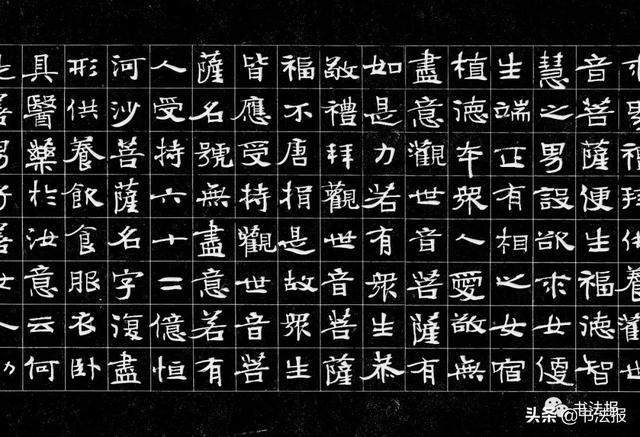 求男禮拜供養觀世
音菩薩便生福德智
慧之男設欲求女便
生端正有相之女宿
植德本眾人愛敬無
盡意觀世音菩薩有
如是力若有眾生恭
敬禮拜觀世音菩薩
福不唐捐是故眾生
皆應受持觀世音菩
薩名號無盡意若有
人受持六十二億恒
河沙菩薩名字復盡
形供養飲食服衣卧
具醫藥於汝意云何
是善男子善女人功
书法报
头条 @书法报